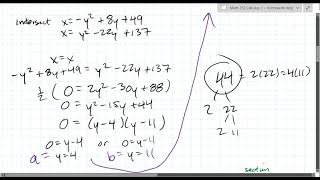 Math 252 Calculus 2
Intersect x=-y²+8y+49
x=y²-22y+137
x=x
-y²+8y+49=y²-22y+137
½(0=2y²-30y+88)
0=y²-15y+44
0=(y-4)(y-11)
0=y-4 or 0=y-11
a=y=4 b=y=11
44 =2(22)=4(11)
2 22
2 11
section